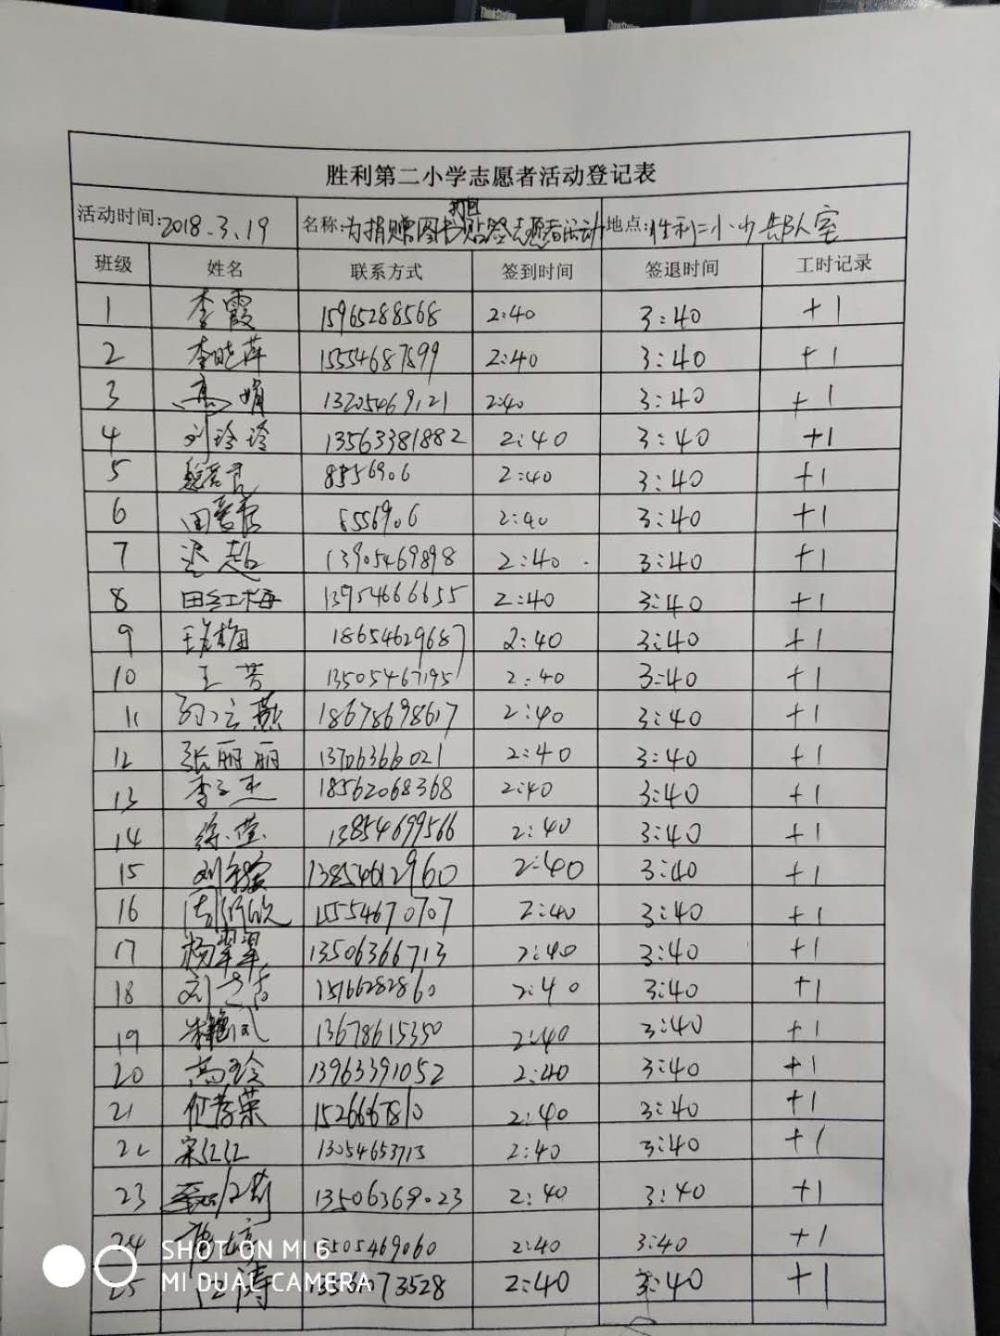 胜利第二小学志愿者活动登记表
活动时间:2018.3.19 名称:为捐赠图书贴签志愿者活动 地点:胜利二小 少部队室
班级 姓名 联系方式 签到时间 签退时间 工时记录
1 李霞 15965288568 2:40 3:40 +1
2 李晓萍 15554687599 2:40 3:40 +1
3 高娟 13205469121 2:40 3:40 +1
4 刘玲玲 13563381882 2:40 3:40 +1
5 8556906 2:40 3:40 +1
6 8556906 2:40 3:40 +1
7 迟超 13905469898 2:40 3:40 +1
8 田红梅 13954666655 2:40 3:40 +1
9 18654629687 2:40 3:40 +1
10 王芳 13505467195 2:40 3:40 +1
11 孙立燕 18678698617 2:40 3:40 +1
12 张丽丽 13706366021 2:40 3:40 +1
13 18562068368 2:40 3:40 +1
14 徐莹 13854699566 2:40 3:40 +1
15 13854612960 2:40 3:40 +1
16 15554670707 2:40 3:40 +1
17 杨翠翠 13506366713 2:40 3:40 +1
18 15166282860 2:40 3:40 +1
19 13678615350 2:40 3:40 +1
20 高玲 13963391052 2:40 3:40 +1
21 1526667810 2:40 3:40 +1
22 宋红红 13054653713 2:40 3:40 +1
23 13506369023 2:40 3:40 +1
24 2:40 3:40 +1
SHOT ON MI 6
25 2:40 3:40 +1
MI DUAL CAMERA